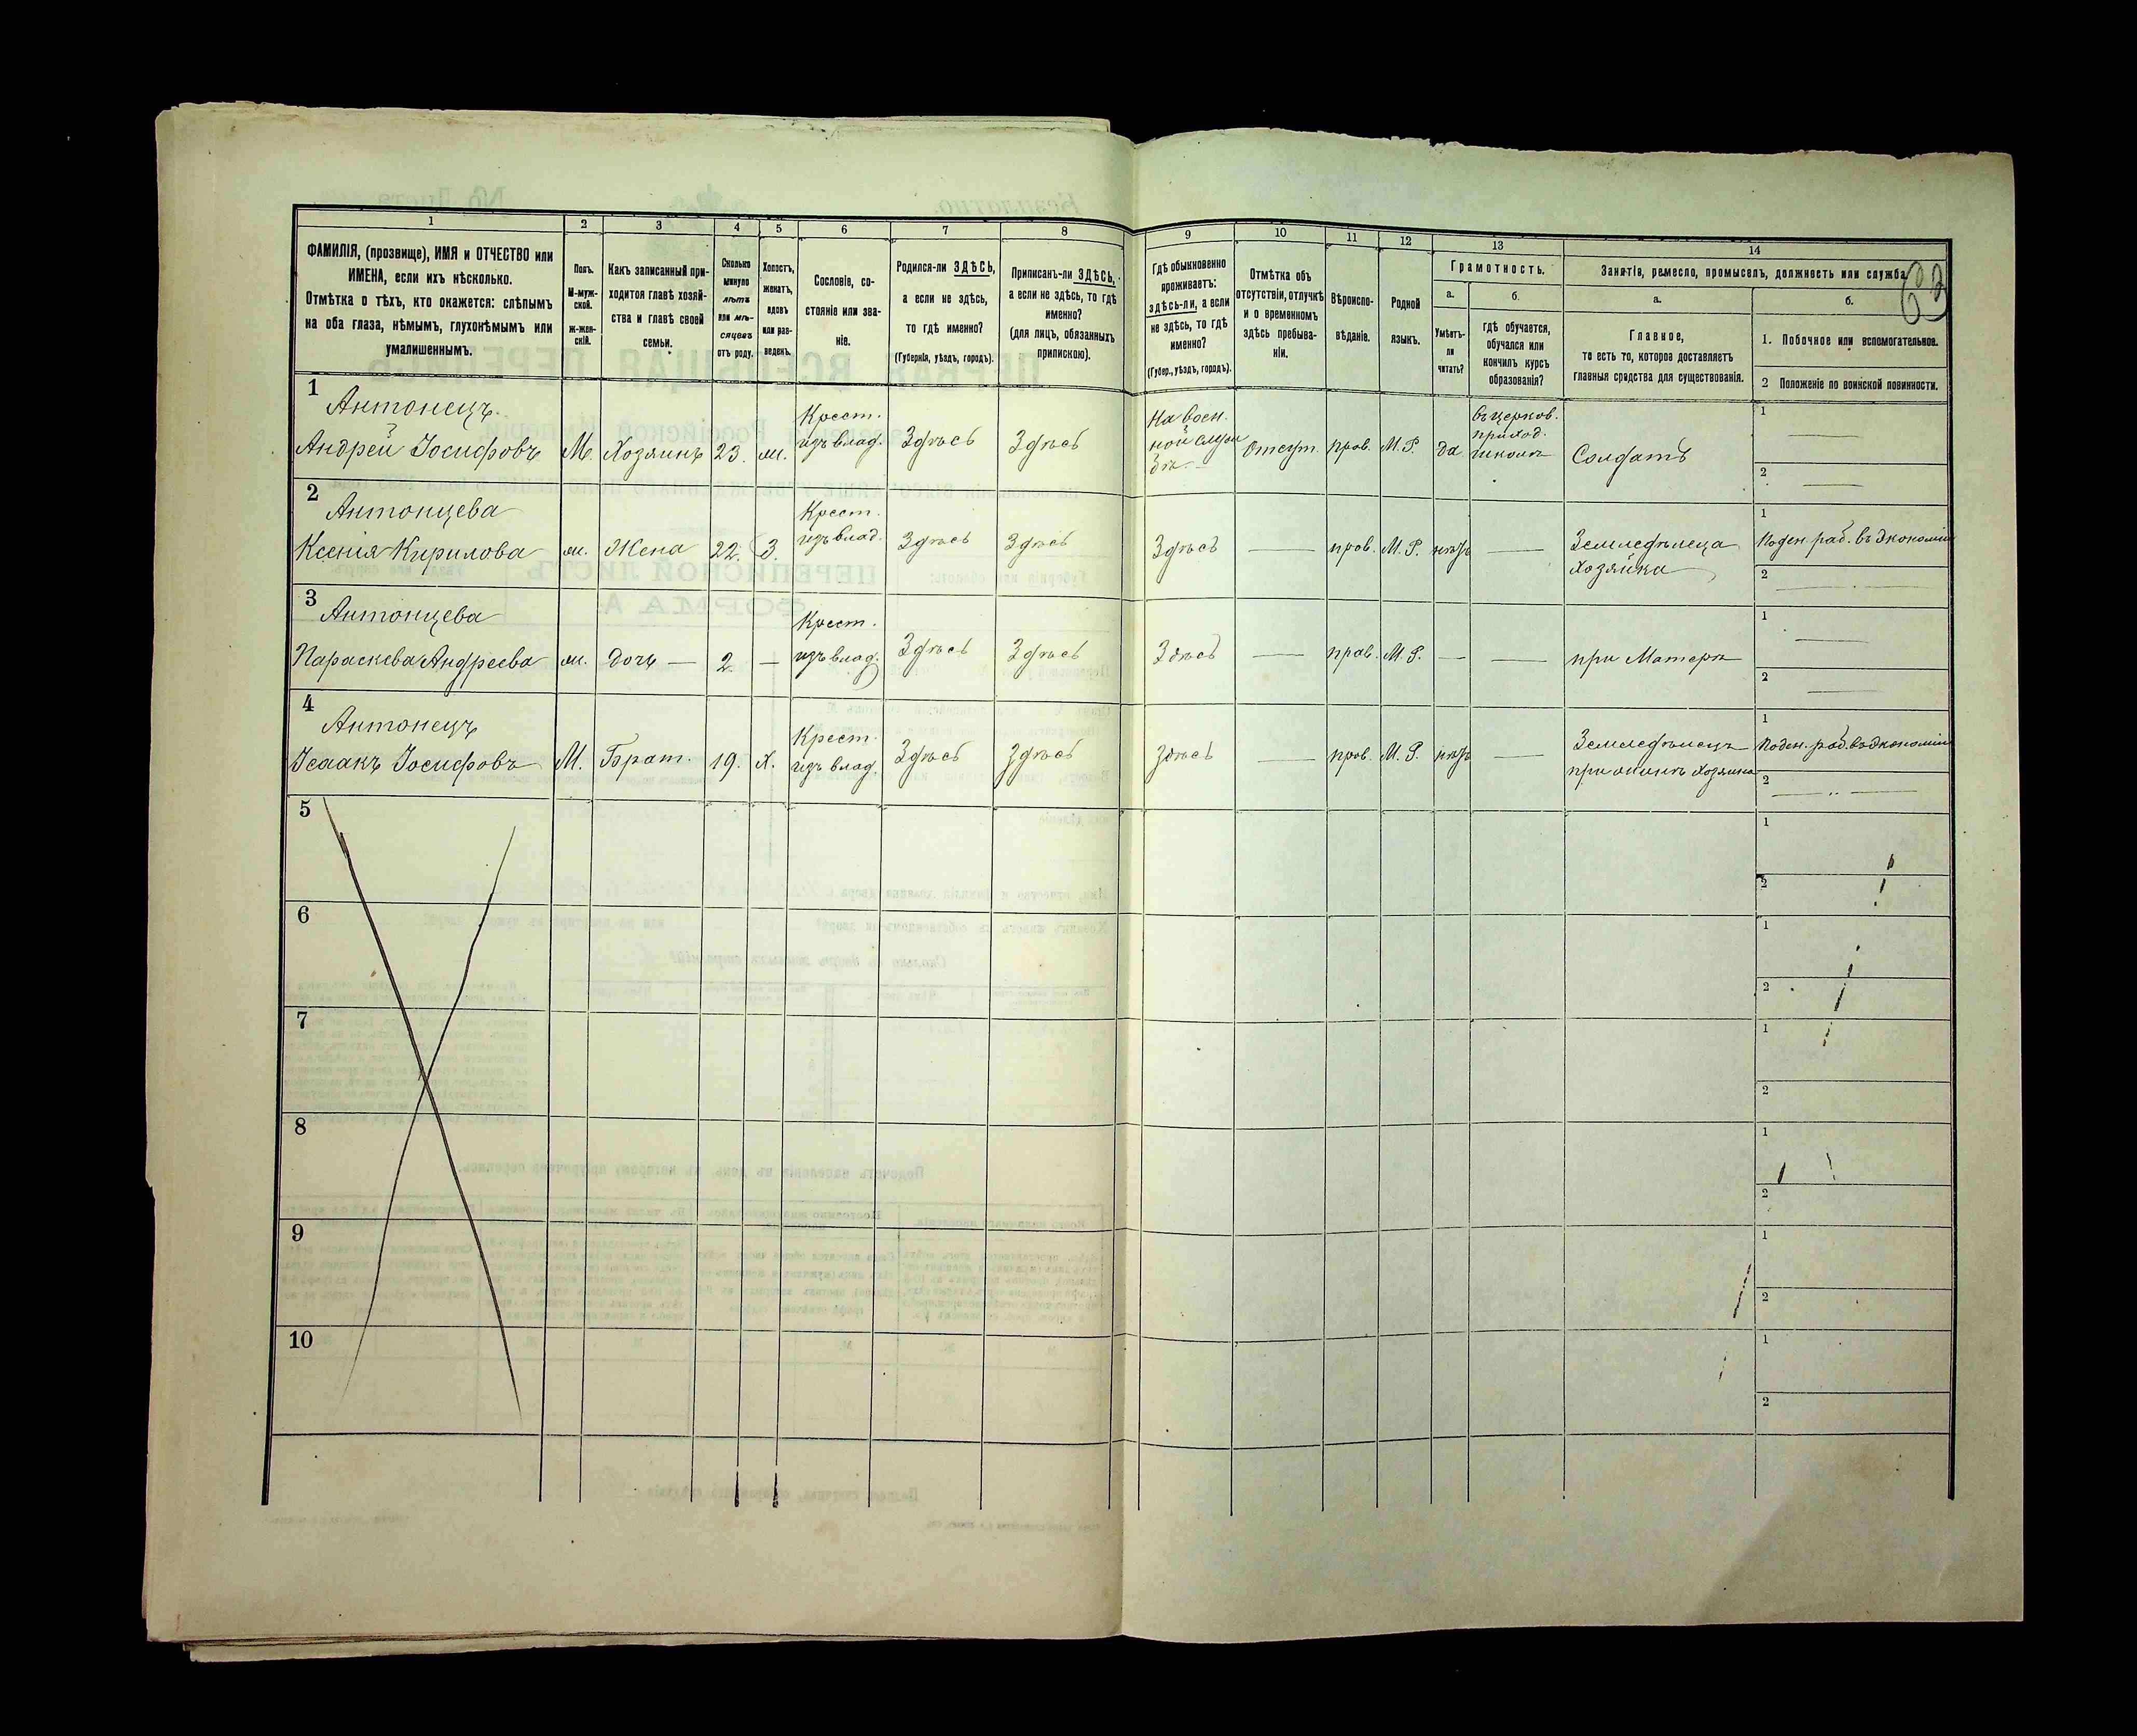 63
1 2 3 4 5 6 7 8 9 10 11 12 13 14
ФАМИЛІЯ, (прозвище), ИМЯ и ОТЧЕСТВО или
ИМЕНА, если ихъ нѣсколько.
Отмѣтка о тѣхъ, кто окажется: слѣпымъ
на оба глаза, нѣмымъ, глухонѣмымъ или
умалишеннымъ.
Полъ.
М-муж-
ской.
ж-жен-
скій.
Какъ записанный при-
ходится главѣ хозяй-
ства и главѣ своей
семьи.
Сколько
минуло
лѣтъ
или мѣ-
сяцевъ
отъ роду.
Холостъ,
женатъ,
вдовъ
или раз-
веденъ.
Сословіе, со-
стояніе или зва-
ніе.
Родился-ли ЗДѢСЬ,
а если не здѣсь,
то гдѣ именно?
(Губернія, уѣздъ, городъ).
Приписанъ-ли ЗДѢСЬ,
а если не здѣсь, то гдѣ
именно?
(для лицъ, обязанныхъ
припискою).
Гдѣ обыкновенно
проживаетъ:
здѣсь-ли, а если
не здѣсь, то гдѣ
именно?
(Губер., уѣздъ, городъ).
Отмѣтка объ
отсутствіи, отлучкѣ
и о временномъ
здѣсь пребыва-
ніи.
Вѣроиспо-
вѣданіе.
Родной
языкъ.
Грамотность.
а.
Умѣетъ-
ли
читать?
б.
гдѣ обучается,
обучался или
кончилъ курсъ
образованія?
Занятіе, ремесло, промыселъ, должность или служба
а.
Главное,
то есть то, которое доставляетъ
главныя средства для существованія.
б.
1. Побочное или вспомогательное.
2 Положеніе по воинской повинности.
1
Антонецъ.
Андрей Іосифовъ
М.
Хозяинъ
23.
ж.
Крест.
изъ влад.
Здѣсь
Здѣсь
На воен.
ной служ
бѣ
Отсут.
прав.
М. Р.
да
въ церков.
приход.
школѣ
Солдатъ
1
2
2
Антонцева
Ксенія Кирилова
ж.
Жена
22.
З.
Крест.
изъ влад.
Здѣсь
Здѣсь
Здѣсь
прав.
М. Р.
нѣтъ
Земледѣлеца
Хозяйка
1
Поден. раб. въ Экономіи
2
3
Антонцева
Параскева Андреева
ж.
Дочь
2
Крест.
изъ влад.
Здѣсь
Здѣсь
Здѣсь
прав.
М. Р.
при Матери
1
2
4
Антонецъ
Исаакъ Іосифовъ
М.
Братъ.
19.
Х.
Крест.
изъ влад.
Здѣсь
Здѣсь
Здѣсь
прав.
М. Р.
нѣтъ
Земледѣлецъ
1
Поден. раб. въ Экономіи
2
5
1
2
6
1
2
7
1
2
8
1
2
9
1
2
10
1
2